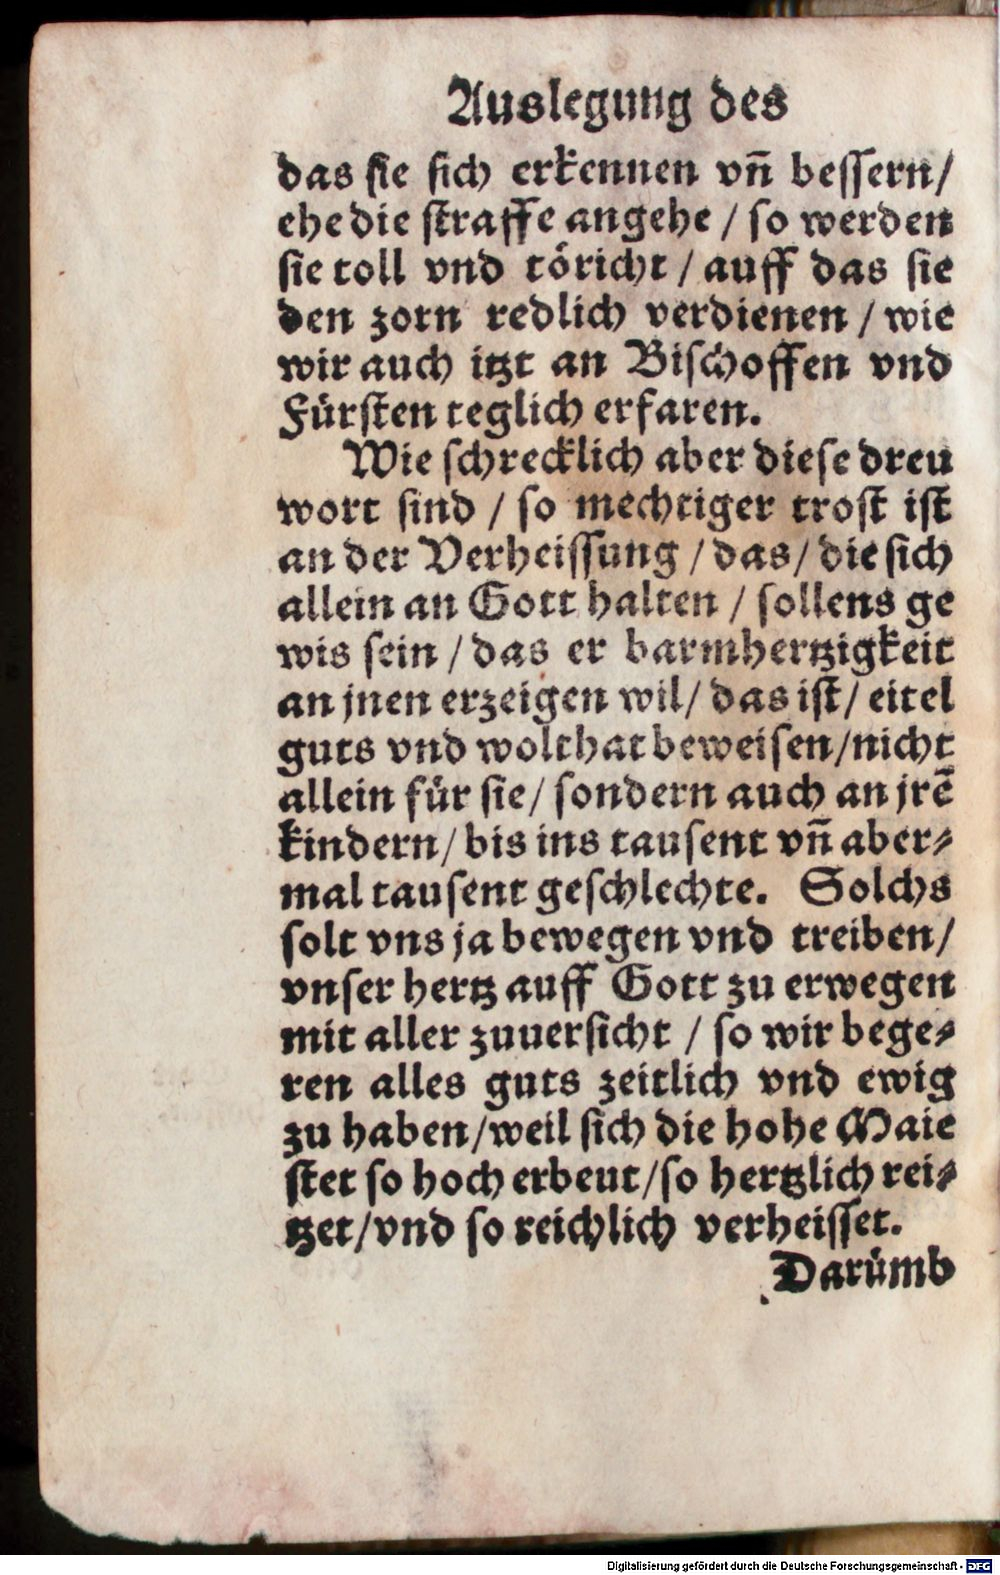 Auslegung des
das sie sich erkennen vn̄ bessern/
ehe die straffe angehe / so werden
sie toll vnd töricht / auff das sie
den zorn redlich verdienen / wie
wir auch itzt an Bischoffen vnd
Fürsten teglich erfaren.
Wie schrecklich aber diese drew
wort sind / so mechtiger trost ist
an der Verheissung / das / die sich
allein an Gott halten / sollens ge
wis sein / das er barmhertzigkeit
an jnen erzeigen wil/ das ist/ eitel
guts vnd wolthat beweisen/nicht
allein für sie/ sondern auch an jrē
kindern/ bis ins tausent vn̄ aber⸗
mal tausent geschlechte. Solchs
solt vns ja bewegen vnd treiben/
vnser hertz auff Gott zu erwegen
mit aller zuuersicht / so wir bege⸗
ren alles guts zeitlich vnd ewig
zu haben/weil sich die hohe Maie
stet so hoch erbeut/so hertzlich rei⸗
tzet/vnd so reichlich verheisset.
Darümb
Digitalisierung gefördert durch die Deutsche Forschungsgemeinschaft - DFG